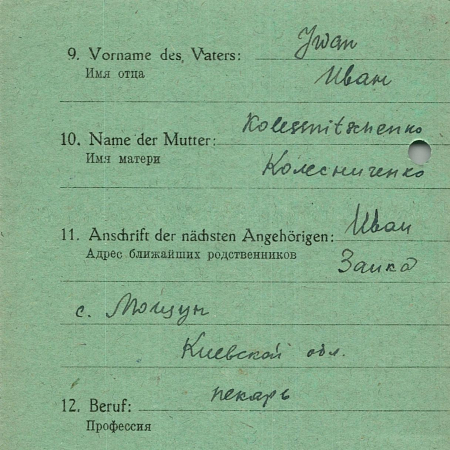 Jwan
9. Vorname des Vaters:
Имя отца
Иван
Kolessnitschenko
10. Name der Mutter:
Имя матери
Колесниченко
Иван
11. Anschrift der nächsten Angehörigen:
Адрес ближайших родственников
Заика
с. Мощун
Киевской обл.
пекарь
12. Beruf:
Профессия